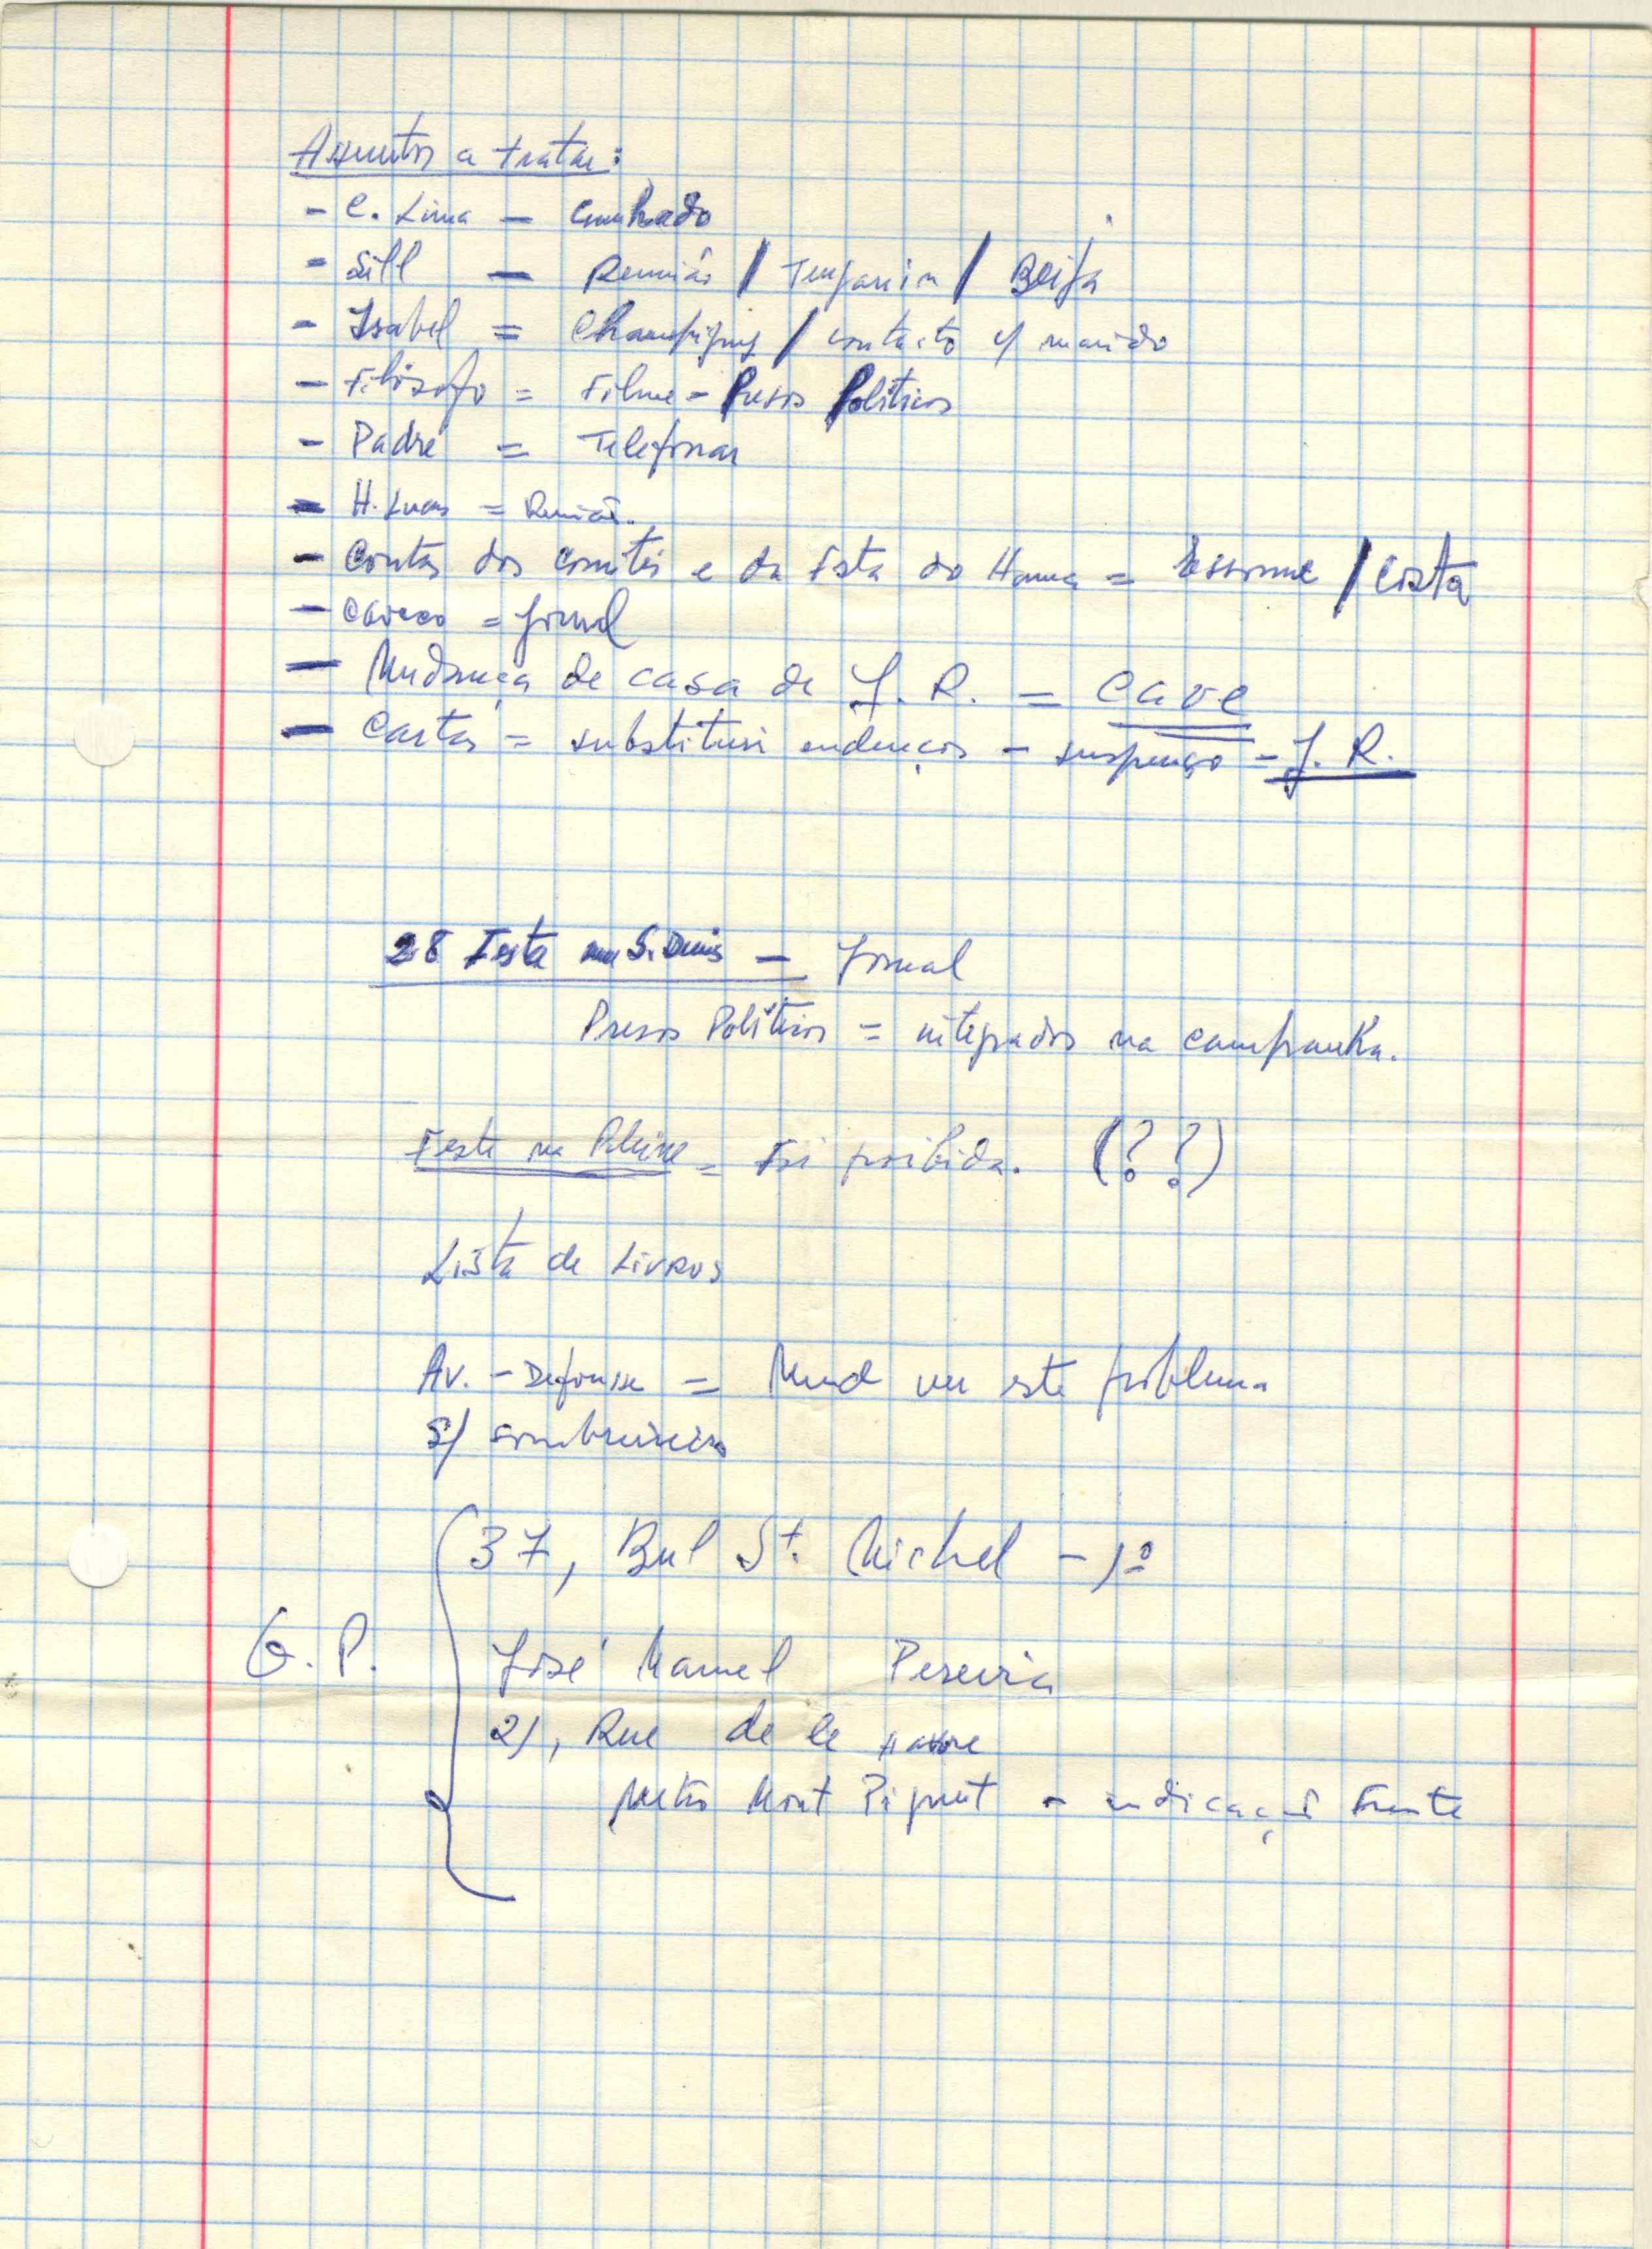 Assuntos a tratar:
- C. Lima - cunhado
- Sill - Reunião / Tengarrinha / Beija
- Isabel = Champigny / contacto c/ marido
- Filósofo = Filme - Presos Políticos
- Padre = Telefonar
- H. Lucas = Reunião.
- Contas dos comités e da Festa do Huma = Essonne / Costa
- = Jornal
- Mudança de casa de J. R. = cave
- Cartas = substituir endereços - suspenço - J. R.
28 Festa em S. Denis - Jornal
Presos Políticos = integrados na campanha.
Festa na = Foi proibida. (??)
Lista de Livros
Av. - Défense = ver este problema
S/
37, Bul St. Michel - 1º
G. P.
José Manuel Pereira
21, Rue de le Havre
Metro Mont Piquet - indicação Frente